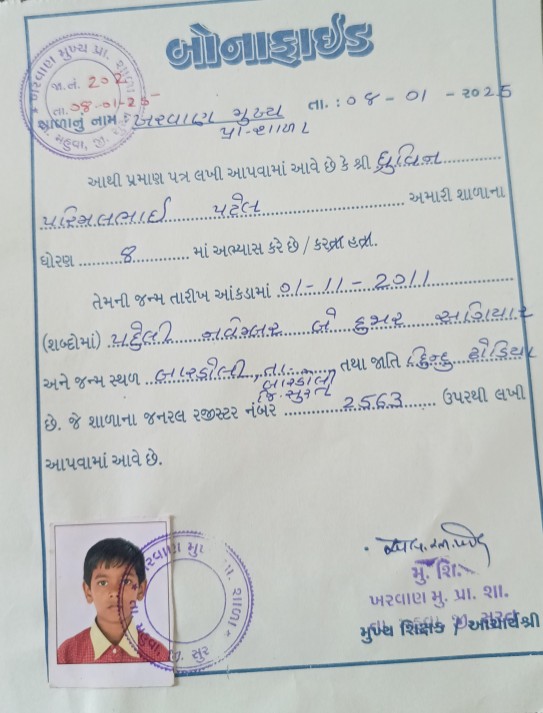 બોનાફાઈડ
ખરવાણ મુખ્ય પ્રા. શાળા
જા.નં. 202
તા. 08-01-25
તા. મહુવા, જી. સુરત
તા. : ૦૪ - ૦૧ - ૨૦૨5
શાળાનું નામ : ખરવાણ મુખ્ય
પ્રા. શાળા
આથી પ્રમાણ પત્ર લખી આપવામાં આવે છે કે શ્રી ધ્રુવિન
પરિમલભાઈ પટેલ અમારી શાળાના
ધોરણ 8 માં અભ્યાસ કરે છે / કરતા હતા.
તેમની જન્મ તારીખ આંકડામાં ૦૧-11-2011
(શબ્દોમાં) પહેલી નવેમ્બર બે હજાર અગિયાર
અને જન્મ સ્થળ બારડોલી, તા. બારડોલી જિ. સુરત તથા જાતિ હિન્દુ ઢોડિયા
છે. જે શાળાના જનરલ રજીસ્ટર નંબર 2563 ઉપરથી લખી
આપવામાં આવે છે.
ખરવાણ મુ પ્રા. શાળા
તા. મહુવા, જી. સુર
મુ. શિ.
ખરવાણ મુ. પ્રા. શા.
તા. મહુવા જી. સુરત
મુખ્ય શિક્ષક / આચાર્યશ્રી